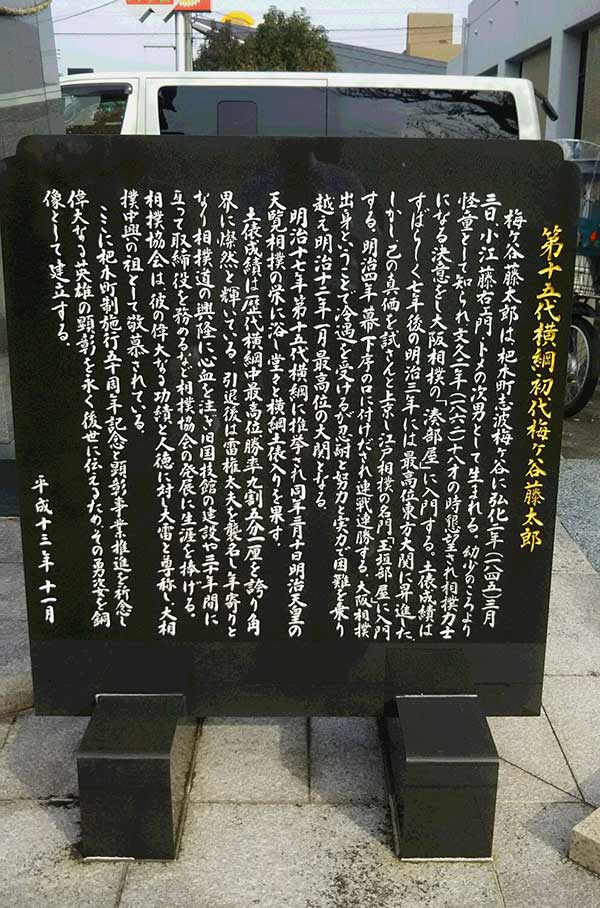 第十五代横綱・初代梅ヶ谷藤太郎
梅ヶ谷藤太郎は、杷木町志波梅ヶ谷に弘化二年(一八四五)三月
三日、小江藤右ヱ門、トメの次男として生まれる。幼少のころより
怪童として知られ文久二年(一八六二)十八才の時懇望され相撲力士
になる決意をし大阪相撲の「湊部屋」に入門する。土俵成績は
すばらしく七年後の明治三年には最高位東方大関に昇進した。
しかし、己の真価を試さんと上京し江戸相撲の名門「玉垣部屋」に入門
する。明治四年幕下序の口に付けだされ連戦連勝する。大阪相撲
出身ということで冷遇を受けるが忍耐と努力と実力で困難を乗り
越え明治十二年一月最高位の大関となる。
明治十七年第十五代横綱に推挙され同年三月十日明治天皇の
天覧相撲の栄に浴し堂々と横綱土俵入りを果す。
土俵成績は「歴代横綱中最高位勝率九割五分一厘を誇り角
界に燦然と輝いている。引退後は雷権太夫を襲名し年寄りと
なり相撲道の興隆に心血を注ぎ旧国技館の建設や三十年間に
亙って取締役を務めるなど相撲協会の発展に生涯を捧げる。
相撲協会は、彼の偉大なる功績と人徳に対し大雷と尊称し大相
撲中興の祖として敬慕されている。
ここに杷木町制施行五十周年記念と顕彰事業推進を祈念し
偉大なる英雄の顕彰を永く後世に伝えるため、その勇姿を銅
像として建立する。
平成十三年十一月